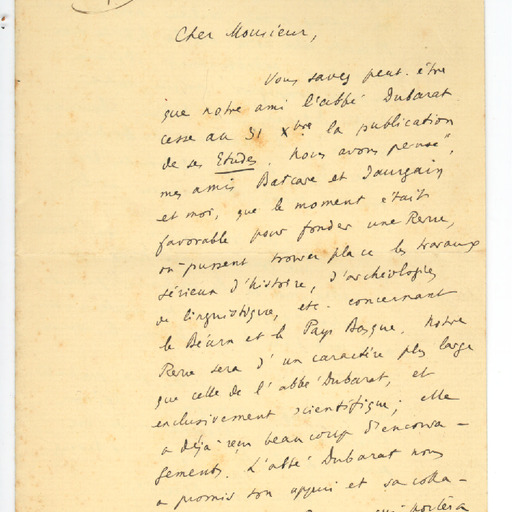 Cher Monsieur,
Vous savez peut-être
que notre ami l'abbé Dubarat
cesse au 31 Xbre la publication
de ses Etudes. Nous avons pensé,
mes amis Batcave et Jaurgain
et moi, que le moment était
favorable pour fonder une Revue,
où pussent trouver place les travaux
sérieux d'histoire, d'archéologie,
de linguistique, etc. concernant
le Béarn et le Pays Basque. Notre
Revue sera d'un caractère plus large
que celle de l'abbé Dubarat, et
exclusivement scientifique; elle
a déjà reçu beaucoup d'encoura-
gements. L'abbé Dubarat nous
a promis son appui et sa colla-
qui portera